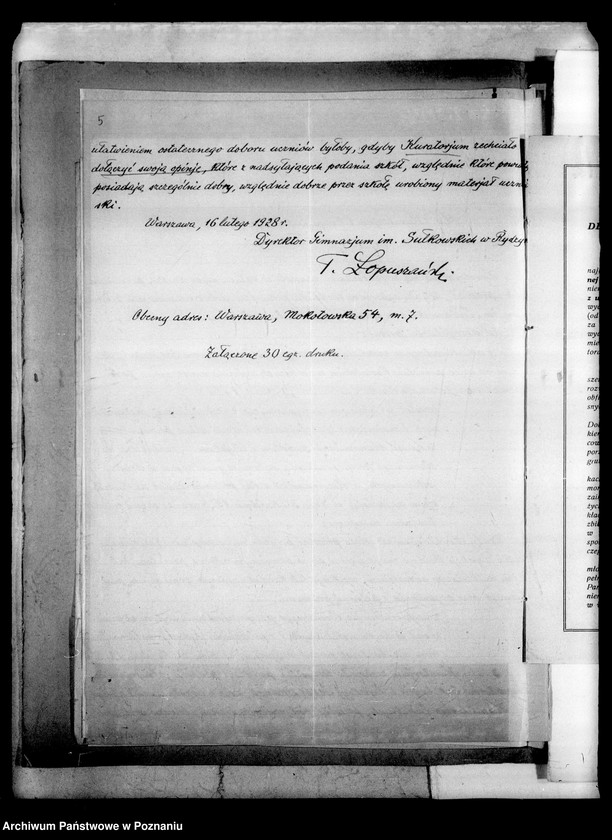 5
ułatwieniem ostatecznego doboru uczniów byłoby, gdyby Kuratorjum zechciało
dołączyć swoją opinję, które z nadsyłających podania szkół, względnie które
posiadają szczególnie dobry, względnie dobrze przez szkołę urobiony materjał uczniow
ski.
Warszawa, 16 lutego 1928 r.
Dyrektor Gimnazjum im. Sułkowskich w Rydzyn
T. Łopuszański.
Obecny adres: Warszawa, Mokotowska 54, m. 7.
Załączone 30 egz. druku.
Archiwum Państwowe w Poznaniu